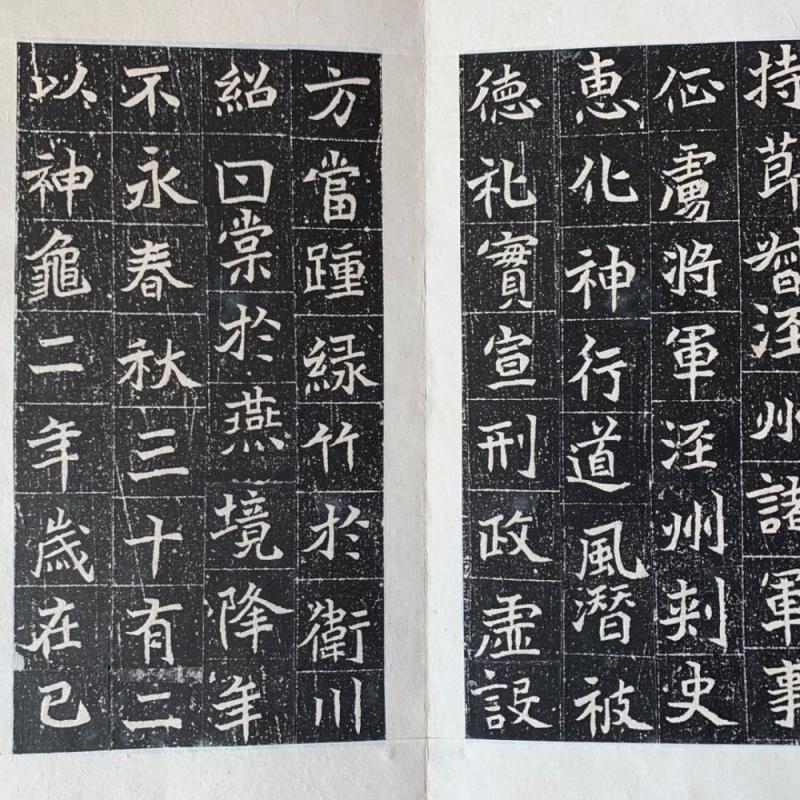 持節督涇州諸軍事
征虜將軍涇州刾史
恵化神行道風潛被
徳礼實宣刑政虛設
方當踵緑竹於衛川
紹甘棠於燕境降年
不永春秋三十有二
以神龜二年歲在己